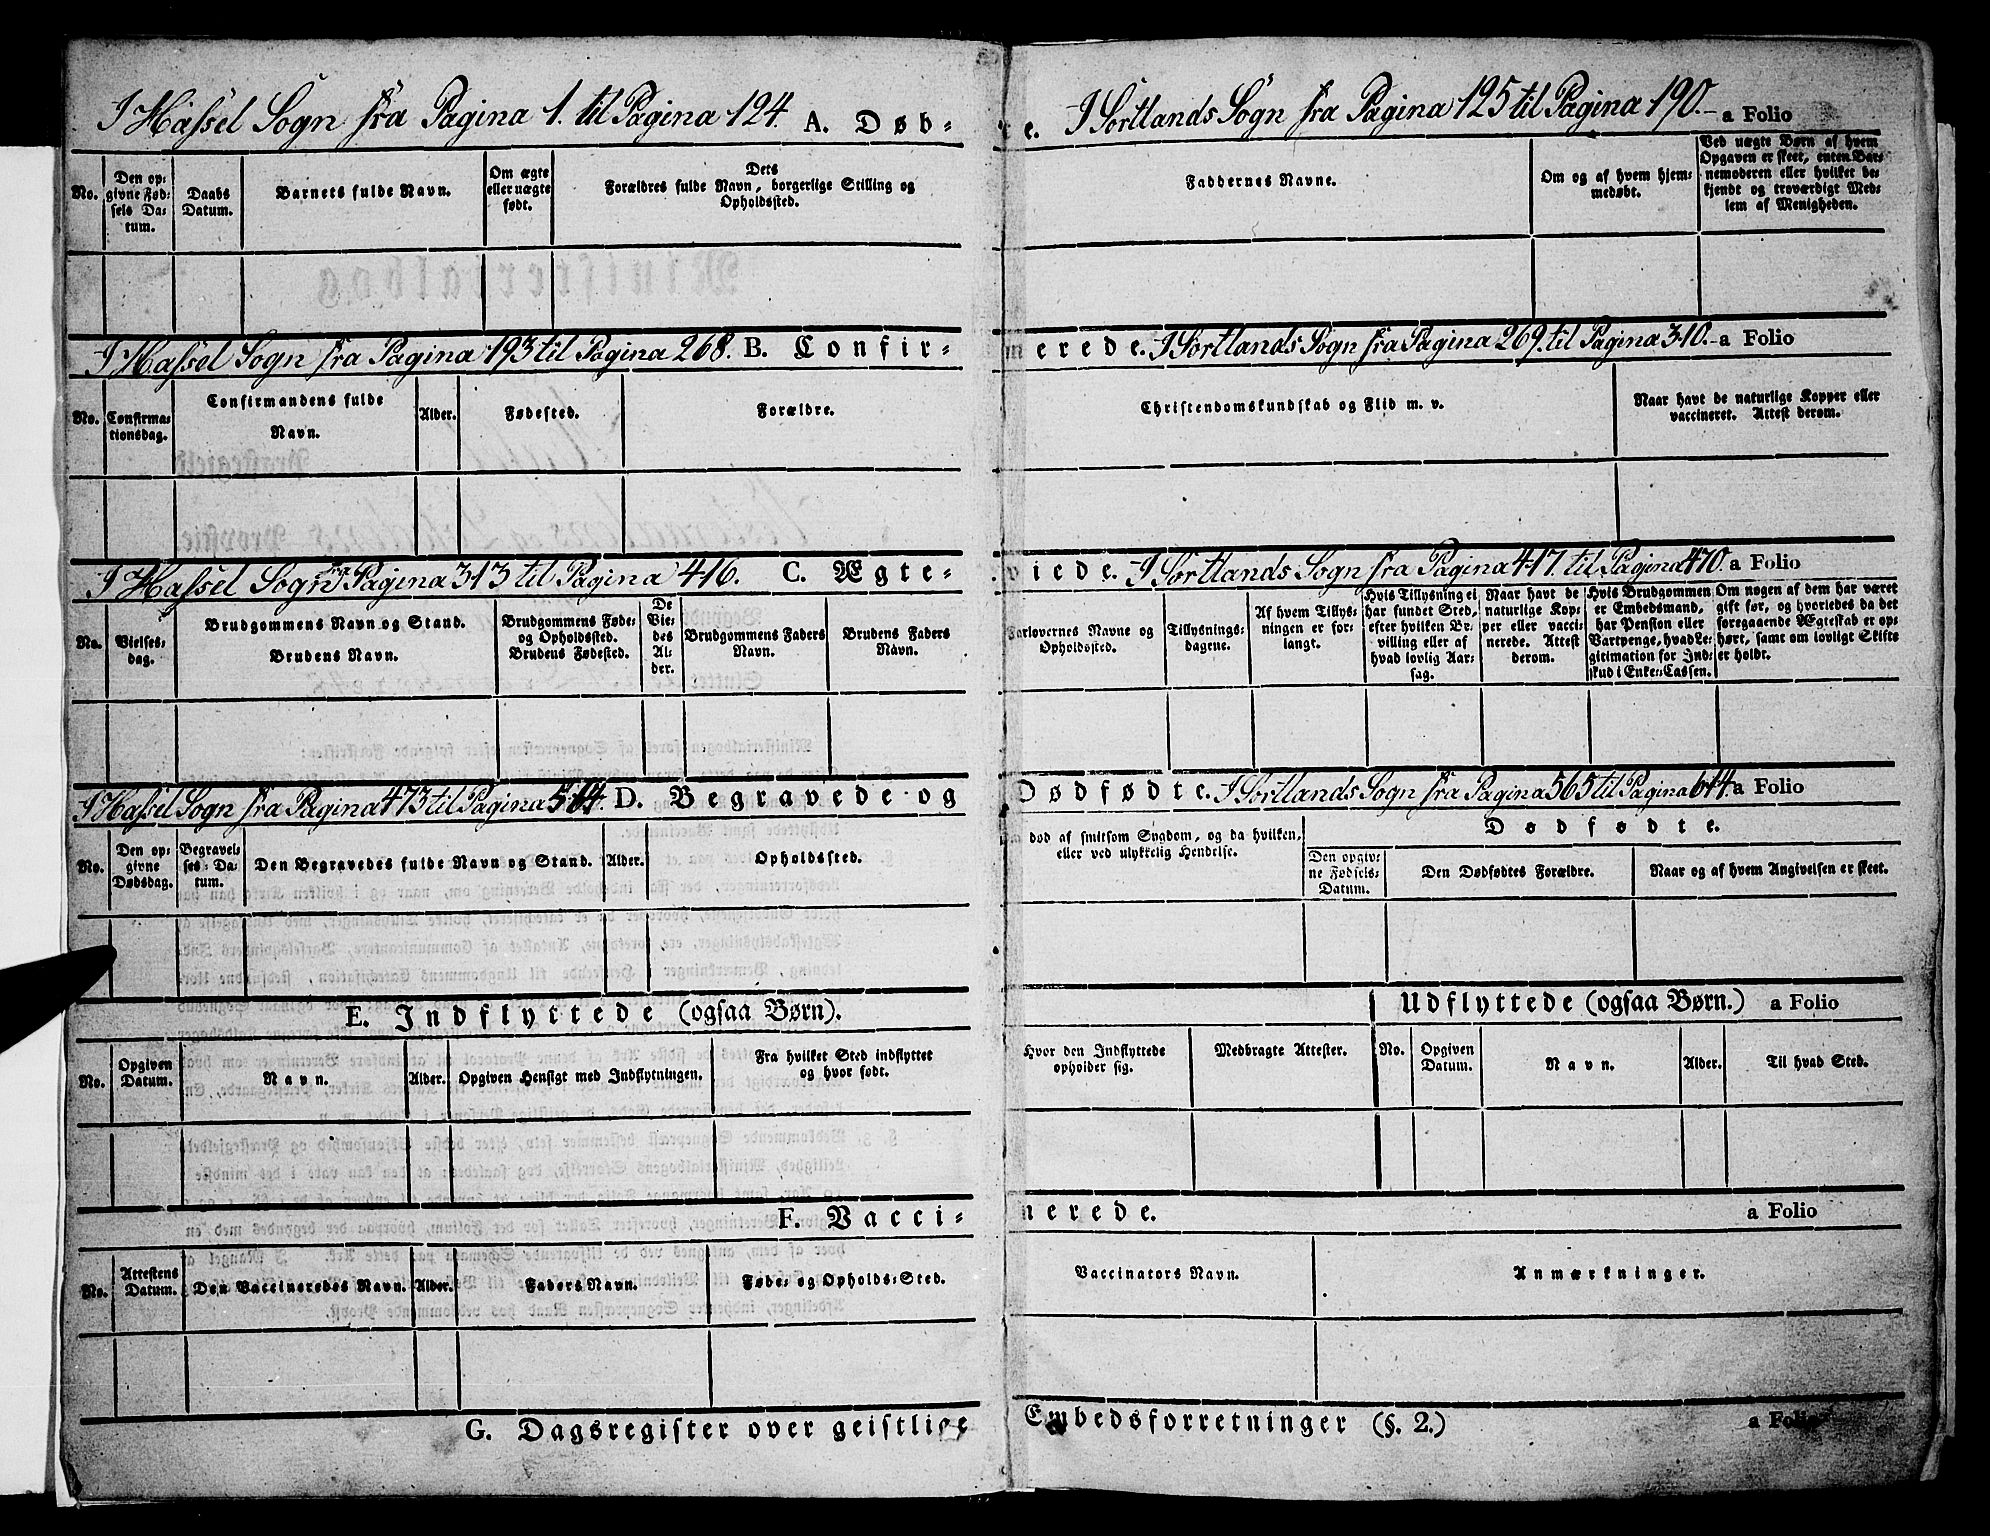 I Hassel Sogn fra Pagina 1. til Pagina 124. A. Døb-
te. I Sortlands Sogn fra Pagina 125 til Pagina 190.- a Folio
No.
Den op-
givne Fød-
sels Da-
tum.
Daabs
Datum.
Barnets fulde Navn.
Om ægte
eller uægte
født.
Dets
Forældres fulde Navn, borgerlige Stilling og
Opholdssted.
Faddernes Navne.
Om og af hvem hjem-
medøbt.
Ved uægte Børn af hvem
Opgaven er skeet, enten Bar-
nemoderen eller hvilket be-
kjendt og troværdigt Med-
lem af Menigheden.
I Hassel Sogn fra Pagina 193 til Pagina 268. B. Confir-
merede. I Sortlands Sogn fra Pagina 269. til Pagina 310.- a Folio
No.
Confirma-
tionsdag.
Confirmandens fulde
Navn.
Alder.
Fødested.
Forældre.
Christendomskundskab og Flid m. v.
Naar havt de naturlige Kopper eller
vaccineret. Attest derom.
I Hassel Sogn fra Pagina 313 til Pagina 416. C. Ægte-
viede. I Sortlands Sogn fra Pagina 417. til Pagina 470. a Folio
No.
Vielses-
dag.
Brudgommens Navn og Stand.
Brudens Navn.
Brudgommens Føde-
og Opholdssted.
Brudens Fødested.
De
Vie-
des
Al-
der.
Brudgommens Faders
Navn.
Brudens Faders
Navn.
Forlovernes Navne og
Opholdssted.
Tillysnings-
dagene.
Af hvem Tillys-
ningen er for-
langt.
Hvis Tillysning ei
har fundet Sted,
efter hvilken Be-
villing eller af
hvad lovlig Aar-
sag.
Naar havt de
naturlige Kop-
per eller vacci-
nerede. Attest
derom.
Hvis Brudgommen
er Embedsmand,
har Pension eller
Vartpenge, hvad Le-
gitimation for Ind-
skud i Enke-Cassen.
Om nogen af dem har været
gift før, og hvorledes da det
foregaaende Ægteskab er op-
hørt, samt om lovligt Skifte
er holdt.
I Hassel Sogn fra Pagina 473 til Pagina 564. D. Begravede og
Dødfødte. I Sortlands Sogn fra Pagina 565 til Pagina 614. a Folio
No.
Den op-
givne
Dødsdag.
Begravel-
ses-Da-
tum.
Den Begravedes fulde Navn og Stand.
Alder.
Opholdssted.
død af smitsom Sygdom, og da hvilken,
eller ved ulykkelig Hendelse.
Dødfødte.
Den opgiv-
ne Fødsels-
Datum.
Den Dødfødtes Forældre.
Naar og af hvem Angivelsen er skeet.
E. Indflyttede (ogsaa Børn).
Udflyttede (ogsaa Børn.) a Folio
No.
Opgiven
Datum.
Navn.
Alder.
Opgiven Hensigt med Indflytningen.
Fra hvilket Sted indflyttet
og hvor født.
Hvor den Indflyttede
opholder sig.
Medbragte Attester.
No.
Opgiven
Datum.
Navn.
Alder.
Til hvad Sted.
F. Vacci-
nerede. a Folio
No.
Attestens
Datum.
Den Vaccineredes Navn.
Alder.
Faders Navn.
Føde- og Opholds-Sted.
Vaccinators Navn.
Anmærkninger.
G. Dagsregister over geistlige
Embedsforretninger (§. 2.) a Folio